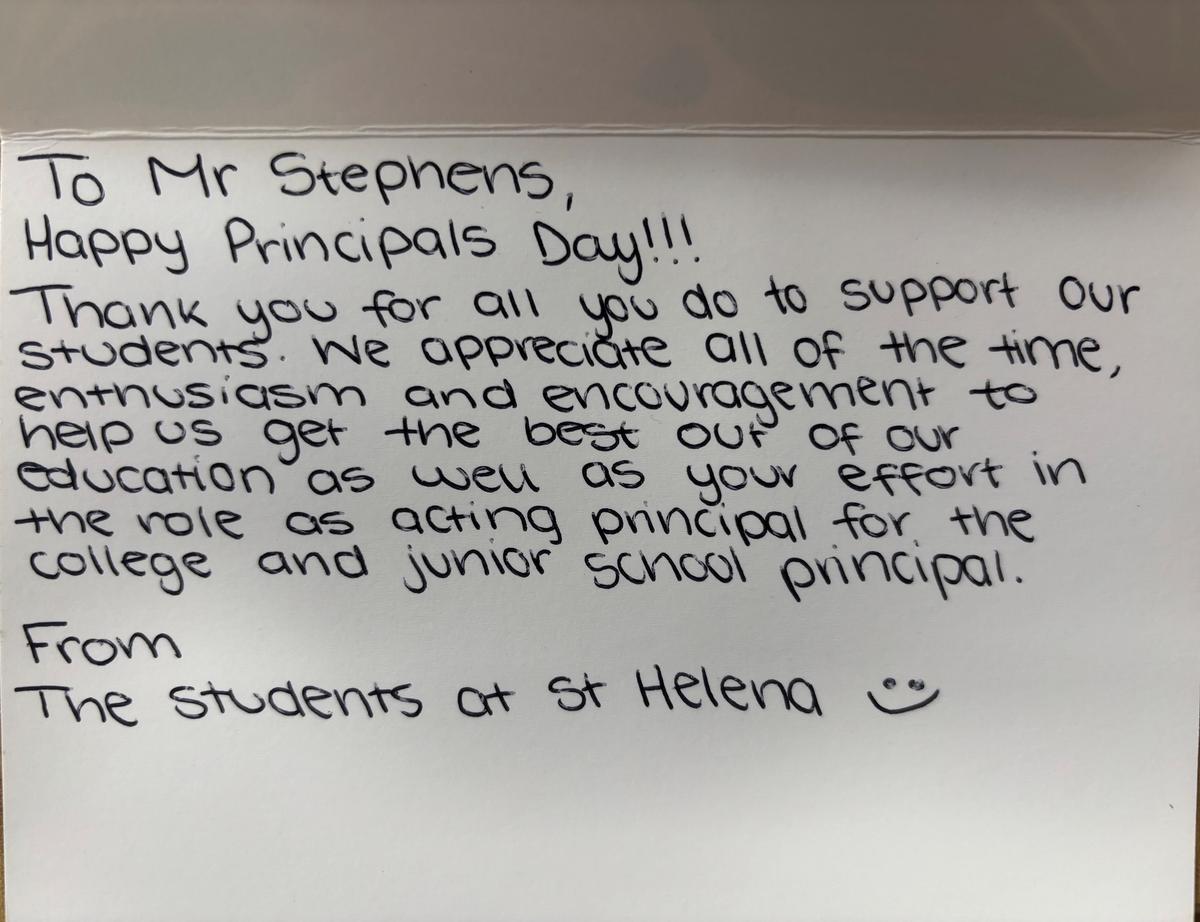 To Mr Stephens,
Happy Principals Day!!!
Thank you for all you do to support our
students. We appreciate all of the time,
enthusiasm and encouragement to
help us get the best out of our
education as well as your effort in
the role as acting principal for the
college and junior school principal.
From
The students at St Helena